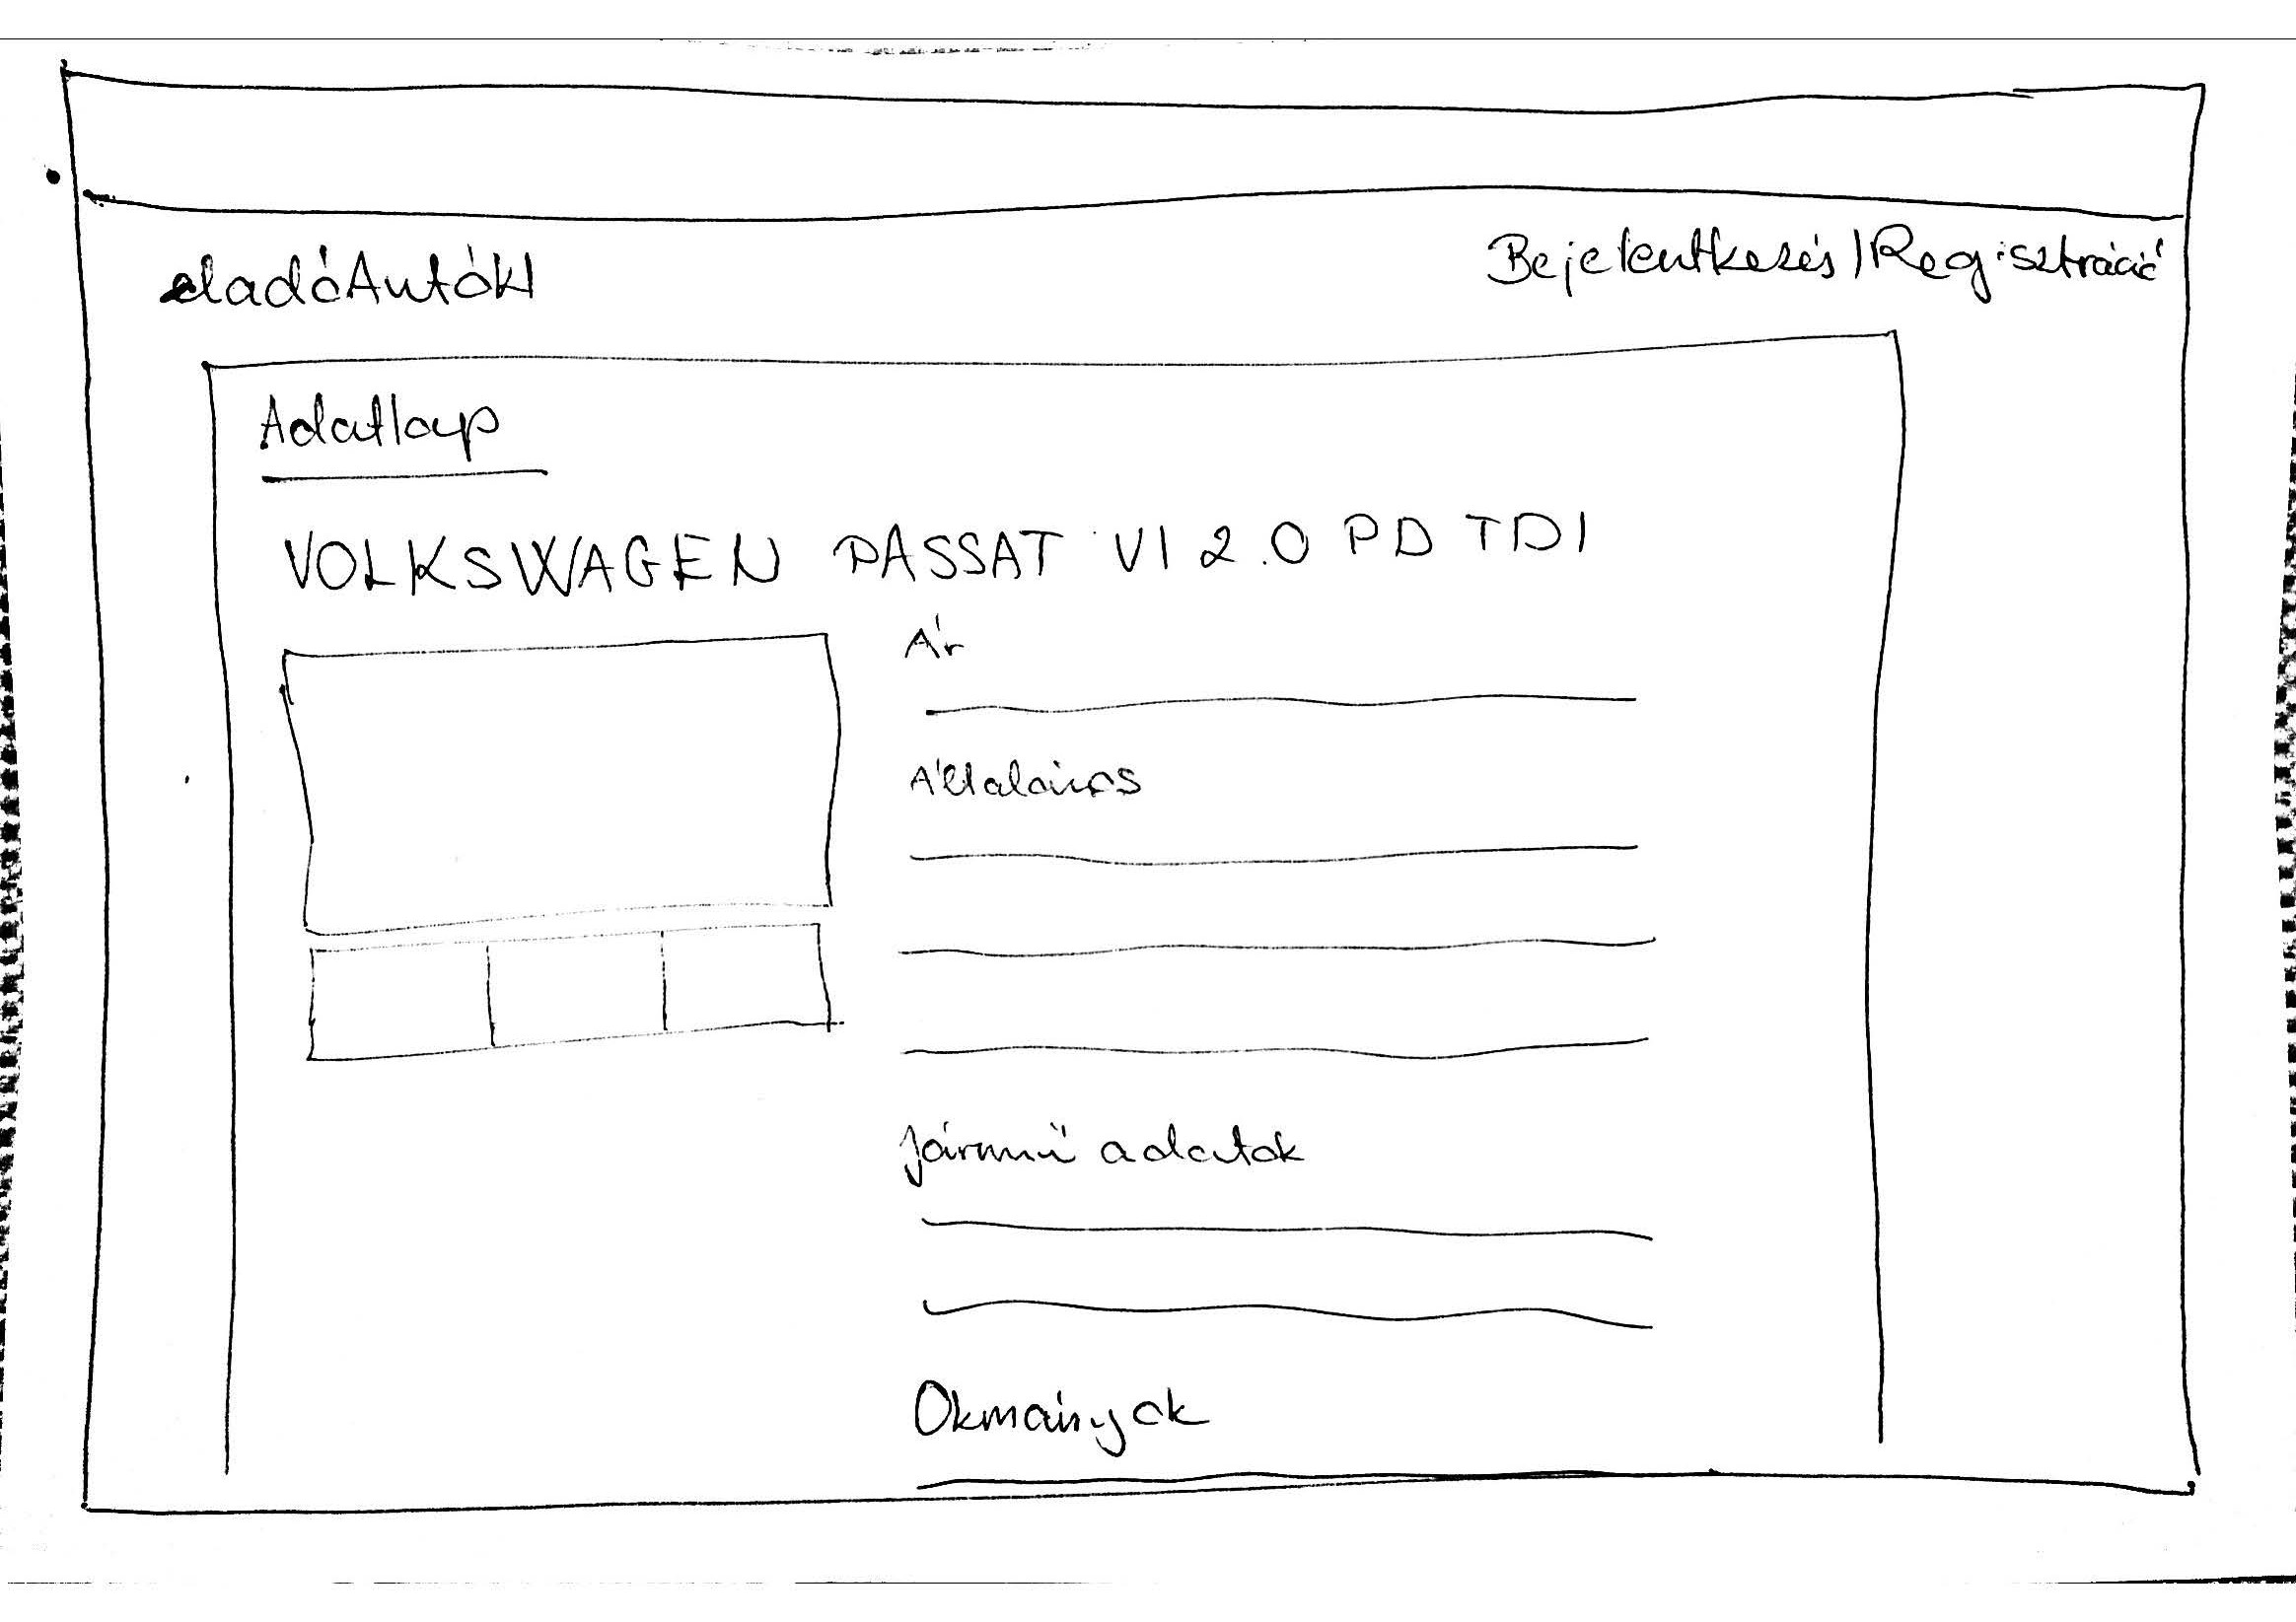 eladóAutók!
Bejelentkezés|Regisztráció
Adatlap
VOLKSWAGEN PASSAT VI 2.0 PD TDI
Ár
Általános
Jármű adatok
Okmányok